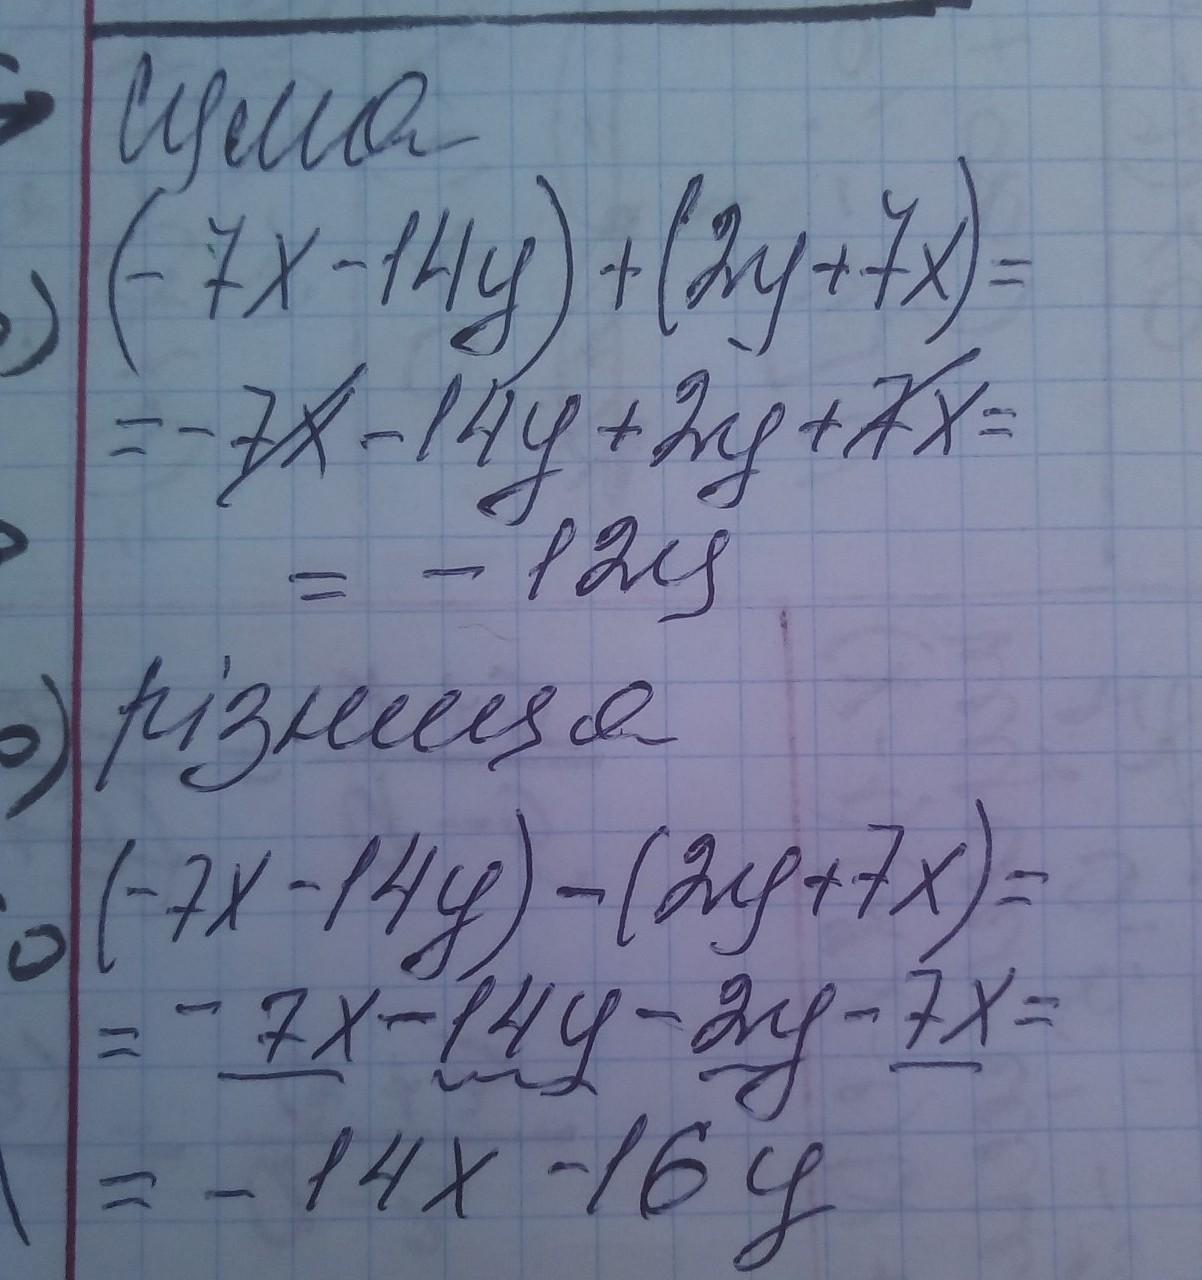 сума
(-7x-14y)+(2y+7x)=
=-7x-14y+2y+7x=
=-12y
різниця
(-7x-14y)-(2y+7x)=
=-7x-14y-2y-7x=
=-14x-16y